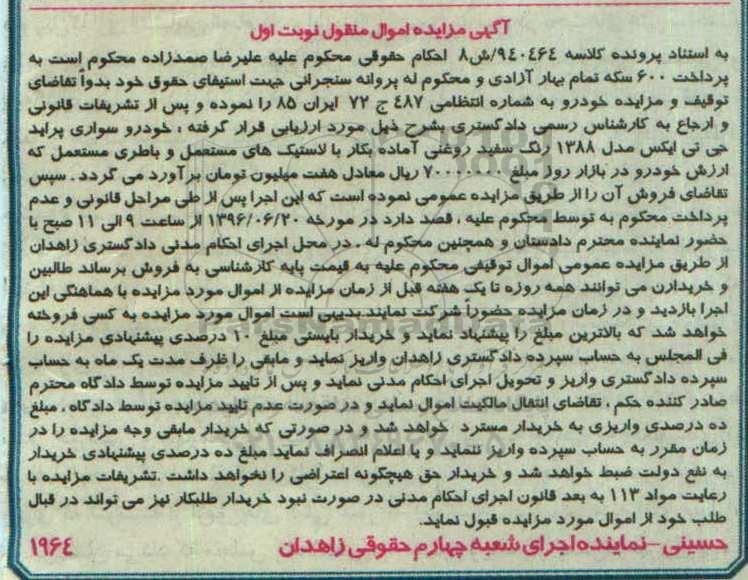 آگهی مزایده اموال منقول نوبت اول
به استناد پرونده کلاسه ۹٤۰٤٦٤/ش۸ احکام حقوقی محکوم علیه علیرضا صمدزاده محکوم است به
پرداخت ٦۰۰ سکه تمام بهار آزادی و محکوم له پروانه سنجرانی جهت استیفای حقوق خود بدواً تقاضای
توقیف و مزایده خودرو به شماره انتظامی ٤۸۷ ج ۷۲ ایران ۸۵ را نموده و پس از تشریفات قانونی
و ارجاع به کارشناس رسمی دادگستری بشرح ذیل مورد ارزیابی قرار گرفته ، خودرو سواری پراید
جی تی ایکس مدل ۱۳۸۸ رنگ سفید روغنی آماده بکار با لاستیک های مستعمل و باطری مستعمل که
ارزش خودرو در بازار روز مبلغ ۷۰۰۰۰۰۰۰ ریال معادل هفت میلیون تومان برآورد می گردد . سپس
تقاضای فروش آن را از طریق مزایده عمومی نموده است که این اجرا پس از طی مراحل قانونی و عدم
پرداخت محکوم به توسط محکوم علیه ، قصد دارد در مورخه ۱۳۹٦/۰٦/۲۰ از ساعت ۹ الی ۱۱ صبح با
حضور نماینده محترم دادستان و همچنین محکوم له . در محل اجرای احکام مدنی دادگستری زاهدان
از طریق مزایده عمومی اموال توقیفی محکوم علیه به قیمت پایه کارشناسی به فروش برساند طالبین
و خریدارن می توانند همه روزه تا یک هفته قبل از زمان مزایده از اموال مورد مزایده با هماهنگی این
اجرا بازدید و در زمان مزایده حضوراً شرکت نمایند.بدیهی است اموال مورد مزایده به کسی فروخته
خواهد شد که بالاترین مبلغ را پیشنهاد نماید و خریدار بایستی مبلغ ۱۰ درصدی پیشنهادی مزایده را
فی المجلس به حساب سپرده دادگستری زاهدان واریز نماید و مابقی را ظرف مدت یک ماه به حساب
سپرده دادگستری واریز و تحویل اجرای احکام مدنی نماید و پس از تایید مزایده توسط دادگاه محترم
صادر کننده حکم ، تقاضای انتقال مالکیت اموال نماید و در صورت عدم تایید مزایده توسط دادگاه ، مبلغ
ده درصدی واریزی به خریدار مسترد خواهد شد و در صورتی که خریدار مابقی وجه مزایده را در
زمان مقرر به حساب سپرده واریز ننماید و یا اعلام انصراف نماید مبلغ ده درصدی پیشنهادی خریدار
به نفع دولت ضبط خواهد شد و خریدار حق هیچگونه اعتراضی را نخواهد داشت .تشریفات مزایده با
رعایت مواد ۱۱۳ به بعد قانون اجرای احکام مدنی در صورت نبود خریدار طلبکار نیز می تواند در قبال
طلب خود از اموال مورد مزایده قبول نماید.
حسینی -نماینده اجرای شعبه چهارم حقوقی زاهدان ۱۹٦٤